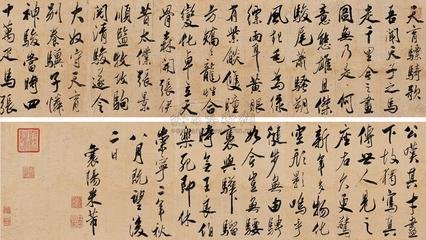 天育驃騎歌
吾聞天子之馬
走千里今之畫
圖無乃是何
意態雄且傑
駿尾蕭梢朔
風起毛為綠
縹兩耳黃眼
有紫燄雙瞳
方矯龍性合
變化卓立天
骨森開張伊
昔太僕張景
順監牧攻駒
閱清駿遂令
大奴守天育
別養驥子憐
神駿當時四
十萬疋馬張
公嘆其才盡
下故獨寫真
傳世人見之
座右久更
新年多物化
空形影嗚乎
健步無由騁
如今豈無騕
褭與驊騮
時無王良伯
樂死即休
崇寧二年秋
八月既望後
二日
襄陽米芾